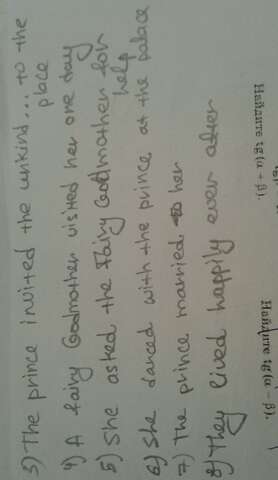 3) The prince invited the unkind... to the
place
4) A fairy Godmother visited her one day
5) She asked the Fairy Godmother for
help
6) She danced with the prince at the palace
7) The prince married to her
8) They lived happily ever after
Найдите tg(α − β).
Найдите tg(α − β).